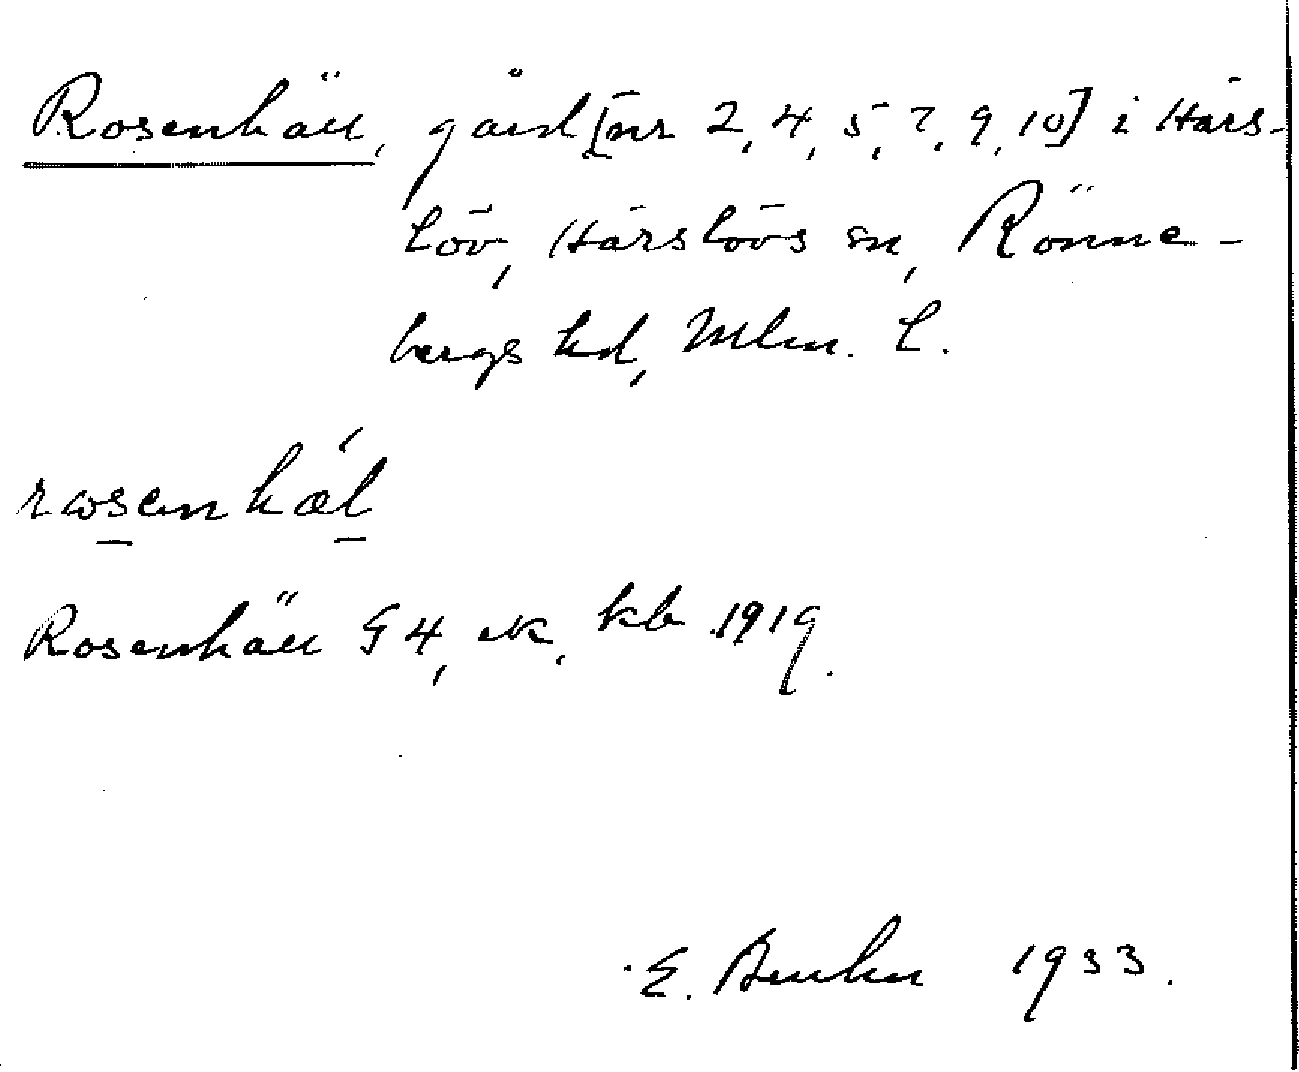 Rosenhäll, gård [nr 2, 4, 5, 7, 9, 10] i Härs-
löv, Härslövs sn, Rönne-
bergs hd, Mlm. l.
rosenhǽl
Rosenhäll G 4, ek, kb 1919.
E. 1933.